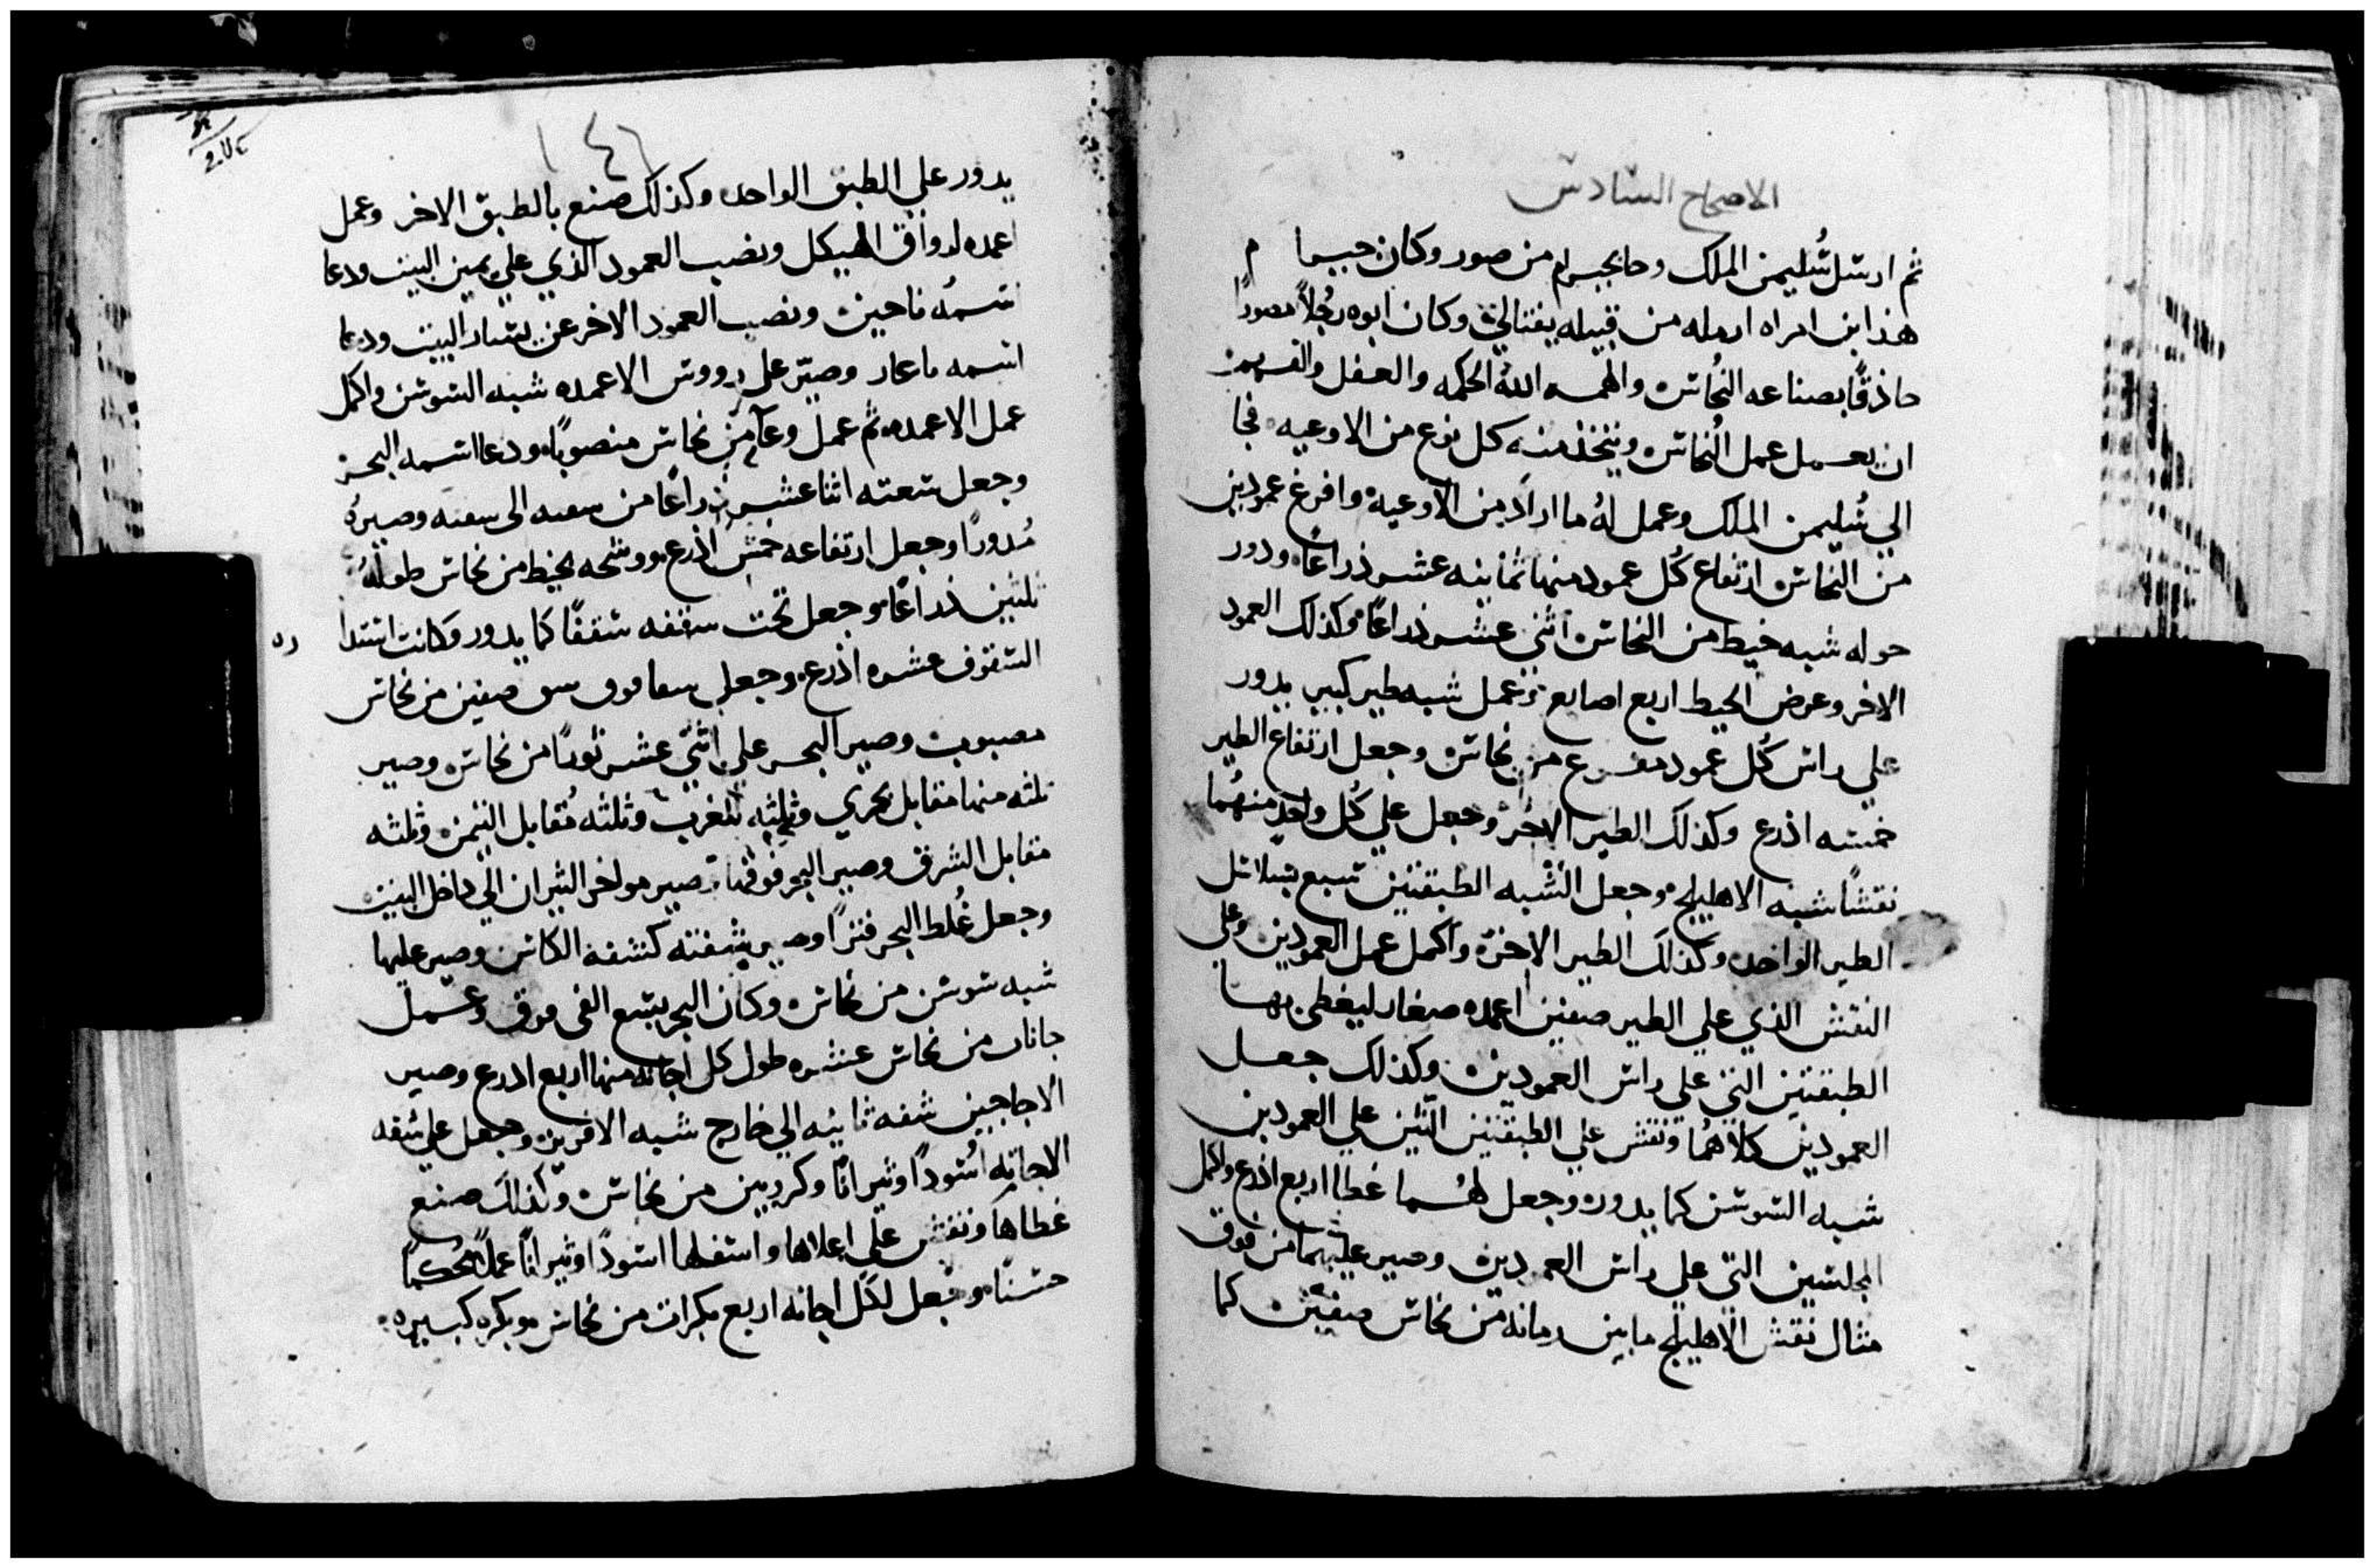 الاصحاح السادس
ثم ارسل سُليمن الملك وجا بحيرام من صور وكان حبيبا م
هذا ابن امراه ارمله من قبيله يفتالي وكان ابوه رجُلاً صورًا
حاذقًا بصناعه النُحاس والهمه اللهُ الحكمه والعقل والفهم
ان يعمل عمل النُحاس ويتخذ منه كل نوع من الاوعيه فجا
الي سُليمن الملك وعمل لهُ ما اراد من الاوعيه وافرغ عمودين
من النحاس ارتفاع كُل عمود منها ثمانيه عشر ذراعًا ودور
حوله شبه خيط من النحاس اثني عشر ذراعًا وكذلك العمود
الاخر وعرض الخيط اربع اصابع وعمل شبه طير كبير يدور
علي راس كُل عمود مفرغ من نحاس وجعل ارتفاع الطير
خمسه اذرع وكذلك الطير الاخر وجعل علي كُل واحدٍ منهُما
نقشًا شبه الاهليلج وجعل لشبه الطبقتين سبع سلاسل
الطير الواحد وكذلك الطير الاخر واكمل عمل العمودين وعلي
النقش الذي علي الطير صفين اعمده صغار ليغطي بها
الطبقتين التي علي راس العمودين وكذلك جعل
العمودين كلاهُما ونقش علي الطبقتين التين علي العمودين
شبه السوسن كما يدور وجعل لهُما غطا اربع اذرع واكمل
المجلسين التي علي راس العمودين وصير عليهما من فوق
مثال نقش الاهليلج مابين رمانه من نحاس صفين كما
يدور علي الطبق الواحد وكذلك صنع بالطبق الاخر وعمل
اعمده لرواق الهيكل ونصب العمود الذي علي يمين البيت ودعا
اسمهُ ناحين ونصب العمود الاخر عن يسار البيت ودعا
اسمه باعار وصيّر علي رووس الاعمده شبه السوسن واكمل
عمل الاعمده ثم عمل وعآ من نحاس منصوبًا ودعا اسمه البحر
وجعل سعته اثنا عشر ذراعًا من سعه الى سعه وصيرهُ
مُدورًا وجعل ارتفاعه خمس اذرع ووشحه بخيط من نحاس طولهُ
ثلثين ذراعًا وجعل تحت سقفه سقفًا كما يدور وكانت استدا
ره
السقوف عشره اذرع وجعل فوق صفين من نحاس
مصبوب وصير البحر علي اثني عشر ثورًا من نحاس وصير
ثلثه منها مقابل بحري وثلثه للغرب وثلثه مُقابل التيمن وثلثه
مقابل الشرق وصير البحر فوقها وصير مواخر الثيران الي داخل البيت
وجعل غُلط البحر فترًا وصير شفته كشفة الكاس وصير عليها
شبه سوسن من نحاس وكان البحر يسع الفي فرق وعمل
جانات من نحاس عشره طول كل اجانه منها اربع ادرع وصير
الاجاجين شفه ثانيه الي خارج شبه الافريز وجعل علي شفه
الاجانه اُسُودًا وثيرانًا وكروبين من نحاس وكذلك صنع
غطاها ونقش علي اعلاها واسفلها اسودًا وثيرانًا عملاً مُحكمًا
حسنًا وجعل لكل اجانه اربع بكرات من نحاس وبكره كبيره